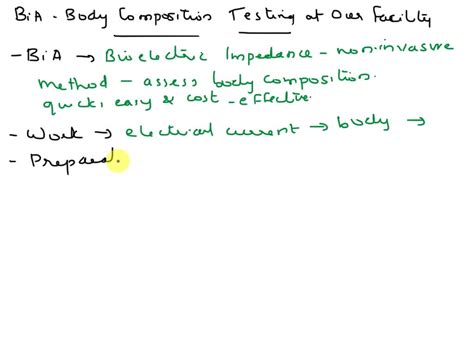 BiA - Body Composition Testing at Our Facility
- BiA → Bioelectric Impedance - non-invasive
method - assess body composition.
quick, easy & cost-effective.
- Work → electrical current → body →
- Preparat.